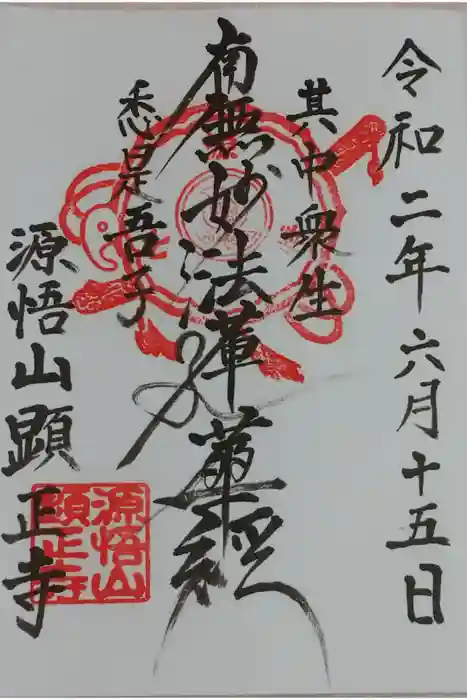 令和二年六月十五日
其中衆生
南無妙法蓮華経
悉是吾子
源悟山顕正寺
源悟山
顕正寺